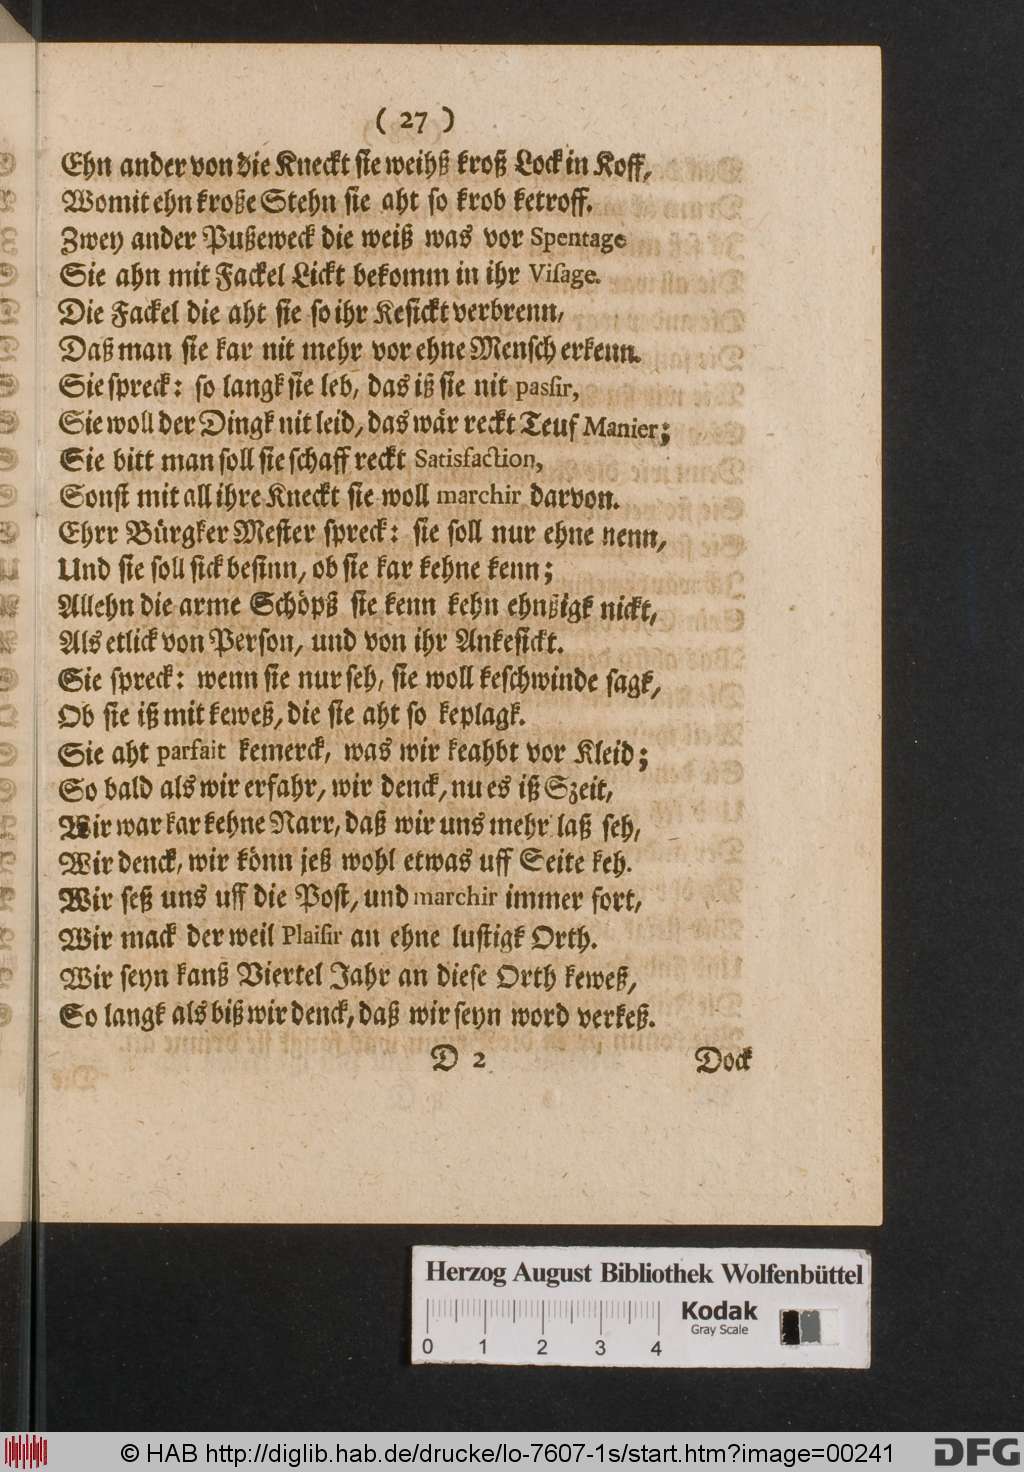 ( 27 )
Ehn ander von die Kneckt sie weihß kroß Lock in Koff,
Womit ehn kroße Stehn sie aht so krob ketroff.
Zwey ander Pußeweck die weiß was vor Spentage
Sie ahn mit Fackel Lickt bekomm in ihr Viſage.
Die Fackel die aht sie so ihr Kesickt verbrenn,
Daß man sie kar nit mehr vor ehne Mensch erkenn.
Sie spreck: so langk sie leb, das iß sie nit paſſir,
Sie woll der Dingk nit leid, das wär reckt Teuf Manier;
Sie bitt man soll sie schaff reckt Satisfaction,
Sonst mit all ihre Kneckt sie woll marchir darvon.
Ehrr Bürgker Mester spreck: sie soll nur ehne nenn,
Und sie soll sick besinn, ob sie kar kehne kenn;
Allehn die arme Schöpß sie kenn kehn ehnßigk nickt,
Als etlick von Person, und von ihr Ankesickt.
Sie spreck: wenn sie nur seh, sie woll keschwinde sagk,
Ob sie iß mit keweß, die sie aht so keplagk.
Sie aht parfait kemerck, was wir keahbt vor Kleid;
So bald als wir erfahr, wir denck, nu es iß Szeit,
Wir war kar kehne Narr, daß wir uns mehr laß seh,
Wir denck, wir könn jeß wohl etwas uff Seite keh.
Wir seß uns uff die Post, und marchir immer fort,
Wir mack der weil Plaiſir an ehne lustigk Orth.
Wir seyn kanß Viertel Jahr an diese Orth keweß,
So langk als biß wir denck, daß wir seyn word verkeß.
D 2 Dock
Herzog August Bibliothek Wolfenbüttel
Kodak
Gray Scale
0 1 2 3 4
© HAB http://diglib.hab.de/drucke/lo-7607-1s/start.htm?image=00241
DFG